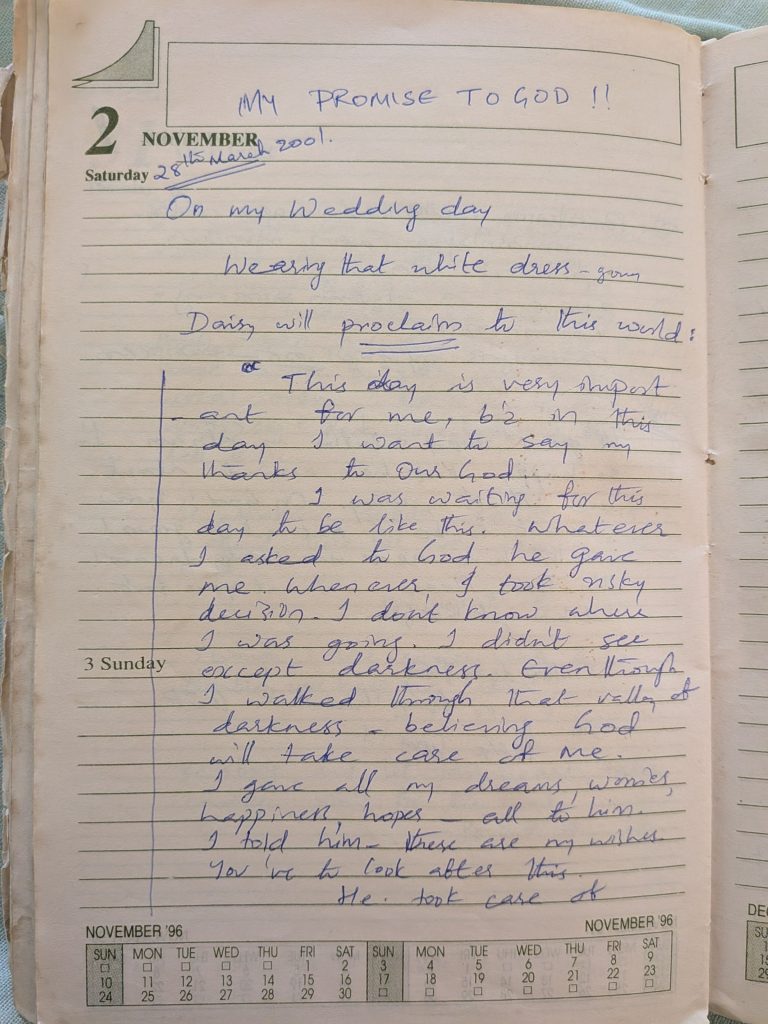 MY PROMISE TO GOD !!
2 NOVEMBER
Saturday 28th March 2001.
On my Wedding day
Wearing that white dress - gown
Daisy will proclaim to this world:
This day is very import
- ant for me, b'z in this
day I want to say my
thanks to Our God.
I was waiting for this
day to be like this. Whatever
I asked to God, he gave
me. Whenever, I took risky
decision. I don't know where
I was going. I didn't see
3 Sunday except darkness. Eventhough
I walked through that valley of
darkness - believing God
will take care of me.
I gave all my dreams, worries,
happiness, hopes - all to him.
I told him - these are my wishes.
You've to look after this.
He took care of
NOVEMBER '96 NOVEMBER '96
SUN MON TUE WED THU FRI SAT SUN MON TUE WED THU FRI SAT
1 2 3 4 5 6 7 8 9
10 11 12 13 14 15 16 17 18 19 20 21 22 23
24 25 26 27 28 29 30